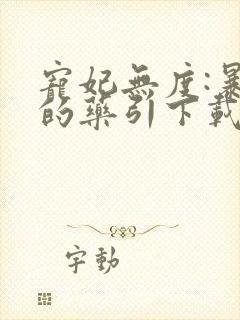 寵妃無度:暴
的藥引下載
字動